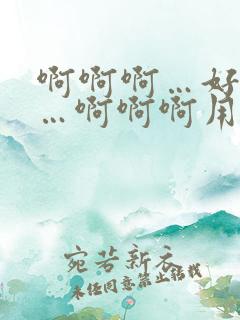 啊啊啊…好
…啊啊啊用
宛若新衣
未经同意禁止转载